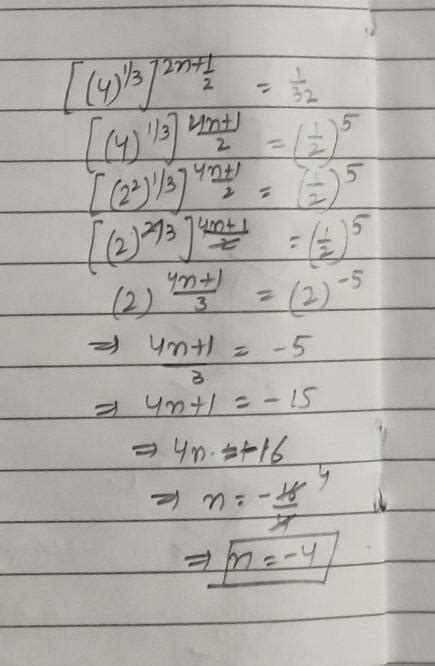 [(4)^{1/3}]^{2n+\frac{1}{2}} = \frac{1}{32}
[(4)^{1/3}]^{\frac{4n+1}{2}} = (\frac{1}{2})^5
[(2^2)^{1/3}]^{\frac{4n+1}{2}} = (\frac{1}{2})^5
[(2)^{2/3}]^{\frac{4n+1}{2}} = (\frac{1}{2})^5
(2)^{\frac{4n+1}{3}} = (2)^{-5}
⇒ \frac{4n+1}{3} = -5
⇒ 4n+1 = -15
⇒ 4n = -16
⇒ n = -\frac{16}{4} 4
⇒ n = -4